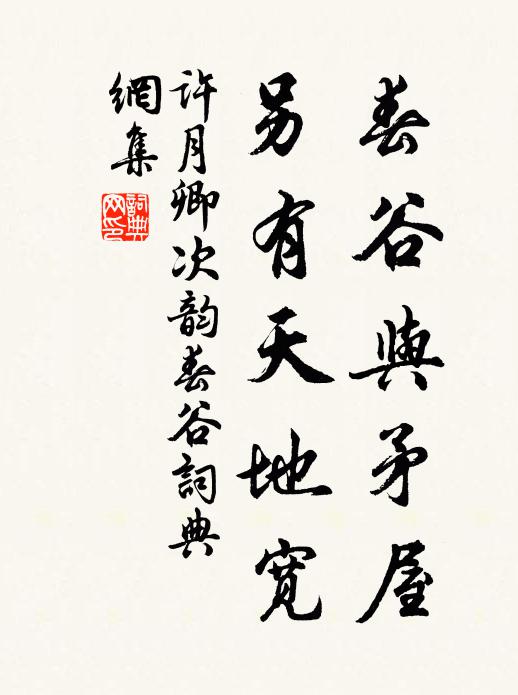 春谷與矛屋
另有天地寬
許月卿次韵春谷詞典
網集
詞典
网印